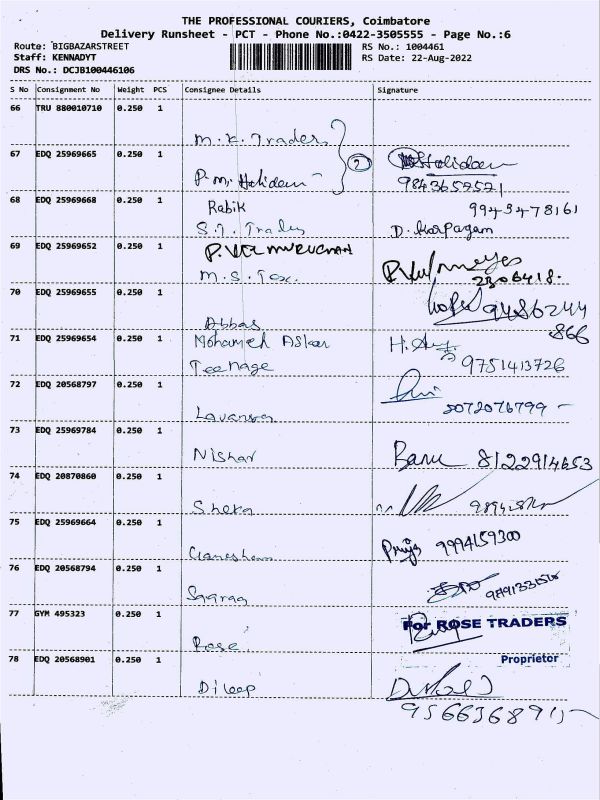 THE PROFESSIONAL COURIERS, Coimbatore
Delivery Runsheet - PCT - Phone No.:0422-3505555 - Page No.:6
Route: BIGBAZARSTREET
Staff: KENNADYT
DRS No.: DCJB100446106
RS No.: 1004461
RS Date: 22-Aug-2022
S No Consignment No Weight PCS Consignee Details Signature
66 TRU 880010710 0.250 1
M.K. Traders
67 EDQ 25969665 0.250 1
P.M. Holidam 2 Holidam
9843652521
68 EDQ 25969668 0.250 1 Rabik 9943478161
S.T. Trades D. Karpagam
69 EDQ 25969652 0.250 1 P. VELMURUGAN
M.S. Tex. 2306418.
70 EDQ 25969655 0.250 1 9486244
Abbas 866
71 EDQ 25969654 0.250 1 Mohamed Askar
Teenage 9751413726
72 EDQ 20568797 0.250 1
Lavanya 5072076799
73 EDQ 25969784 0.250 1
Nishar Banu 8122914653
74 EDQ 20870860 0.250 1
75 EDQ 25969664 0.250 1
Ganesham Priya 9994159300
76 EDQ 20568794 0.250 1
77 GYM 495323 0.250 1
Rose For ROSE TRADERS
Proprietor
78 EDQ 20568901 0.250 1
Dileep